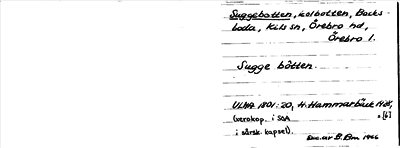 Suggebotten, kolbotten, Backs-
botta, Kils sn, Örebro hd,
Örebro l.
Sugge bötten.
ULMA 1801:20, H. Hammarbäck
(xerokop. i SOA s [6]
i särsk. kapsel).
Exc. av B. Em 1966